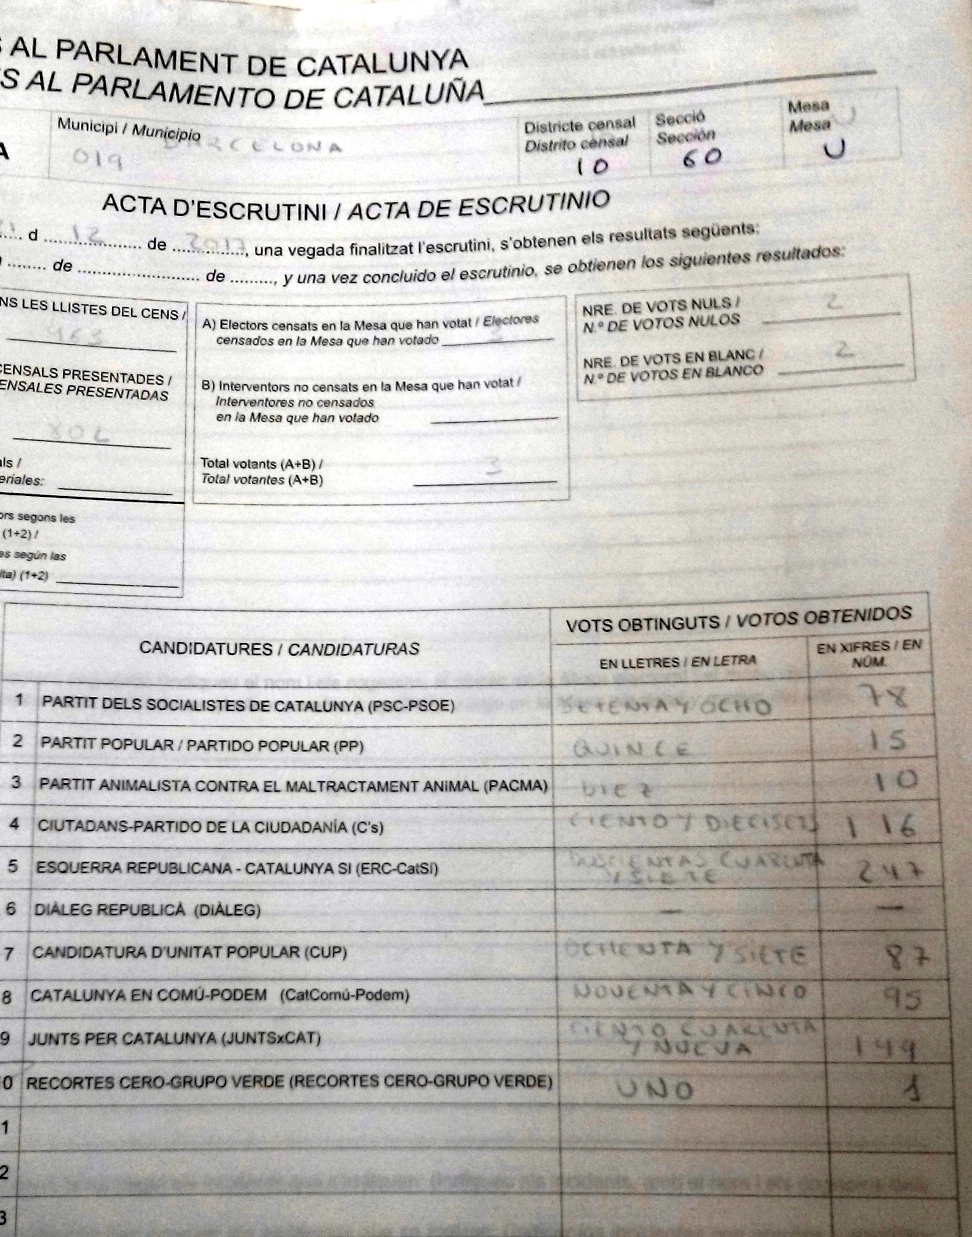 AL PARLAMENT DE CATALUNYA
S AL PARLAMENTO DE CATALUÑA
Municipi / Municipio
019 BARCELONA
Districte censal
Distrito censal
10
Secció
Sección
60
Mesa
Mesa
U
A
ACTA D'ESCRUTINI / ACTA DE ESCRUTINIO
d 12 de 2017, una vegada finalitzat l'escrutini, s'obtenen els resultats següents:
de de , y una vez concluido el escrutinio, se obtienen los siguientes resultados:
NS LES LLISTES DEL CENS /
463
CENSALS PRESENTADES /
ENSALES PRESENTADAS
als /
eriales:
ors segons les
(1+2) /
es según las
ita) (1+2)
A) Electors censats en la Mesa que han votat / Electores
censados en la Mesa que han votado
B) Interventors no censats en la Mesa que han votat /
Interventores no censados
en la Mesa que han votado
Total votants (A+B) /
Total votantes (A+B)
3
NRE. DE VOTS NULS /
N.º DE VOTOS NULOS 2
NRE. DE VOTS EN BLANC /
N.º DE VOTOS EN BLANCO 2
CANDIDATURES / CANDIDATURAS
VOTS OBTINGUTS / VOTOS OBTENIDOS
EN LLETRES / EN LETRA
EN XIFRES / EN
NÚM.
1 PARTIT DELS SOCIALISTES DE CATALUNYA (PSC-PSOE) SETENTA Y OCHO 78
2 PARTIT POPULAR / PARTIDO POPULAR (PP) QUINCE 15
3 PARTIT ANIMALISTA CONTRA EL MALTRACTAMENT ANIMAL (PACMA) DIEZ 10
4 CIUTADANS-PARTIDO DE LA CIUDADANÍA (C's) CIENTO Y DIECISEIS 116
5 ESQUERRA REPUBLICANA - CATALUNYA SI (ERC-CatSí) DOSCIENTAS CUARENTA
Y SIETE 247
6 DIÀLEG REPUBLICÀ (DIÀLEG) — —
7 CANDIDATURA D'UNITAT POPULAR (CUP) OCHENTA Y SIETE 87
8 CATALUNYA EN COMÚ-PODEM (CatComú-Podem) NOVENTA Y CINCO 95
9 JUNTS PER CATALUNYA (JUNTSxCAT) CIENTO CUARENTA
Y NUEVA 149
0 RECORTES CERO-GRUPO VERDE (RECORTES CERO-GRUPO VERDE) UNO 1
1
2
3